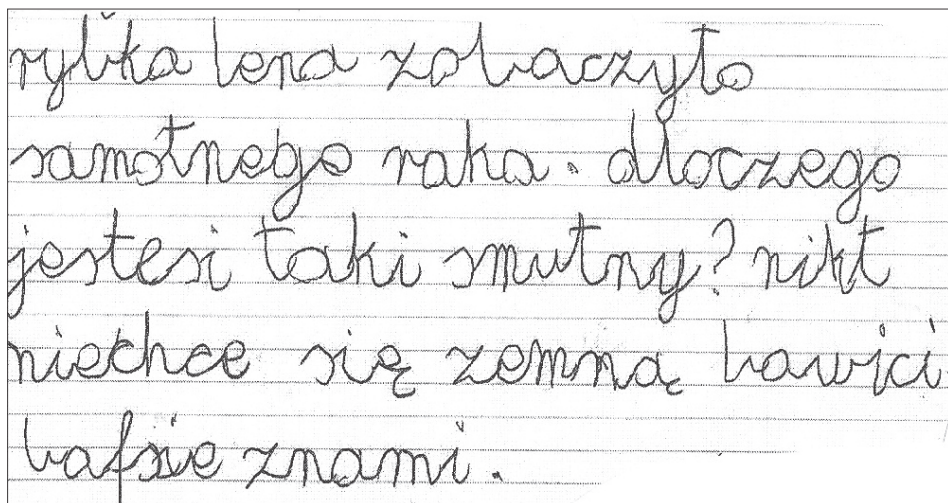 rybka lena zobaczyło
samotnego raka. dloczego
jestesi taki smutny? nikt
niechce się zemną bawici
bafsie znami.